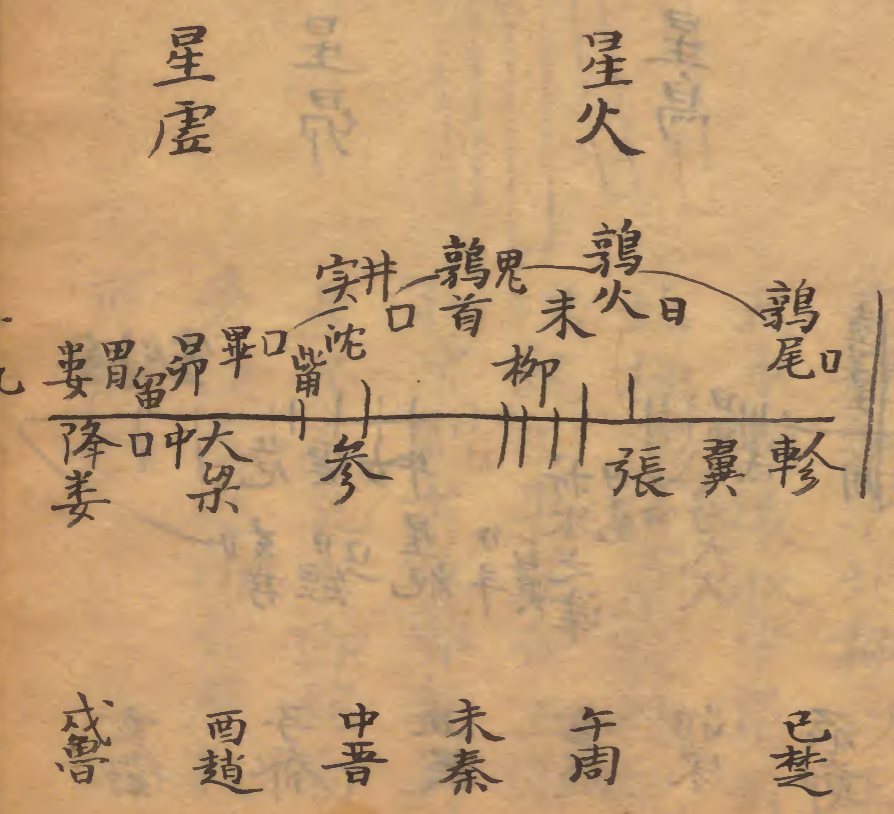 星火
星虚
鶉尾 口
鶉火 日
未
鶉首 鬼
井 口
实沈
觜
畢 口
昴
留
胃
婁
柳
軫
翼
張
參
大梁
中
口
降婁
巳楚
午周
未秦
中晋
酉趙
戌魯